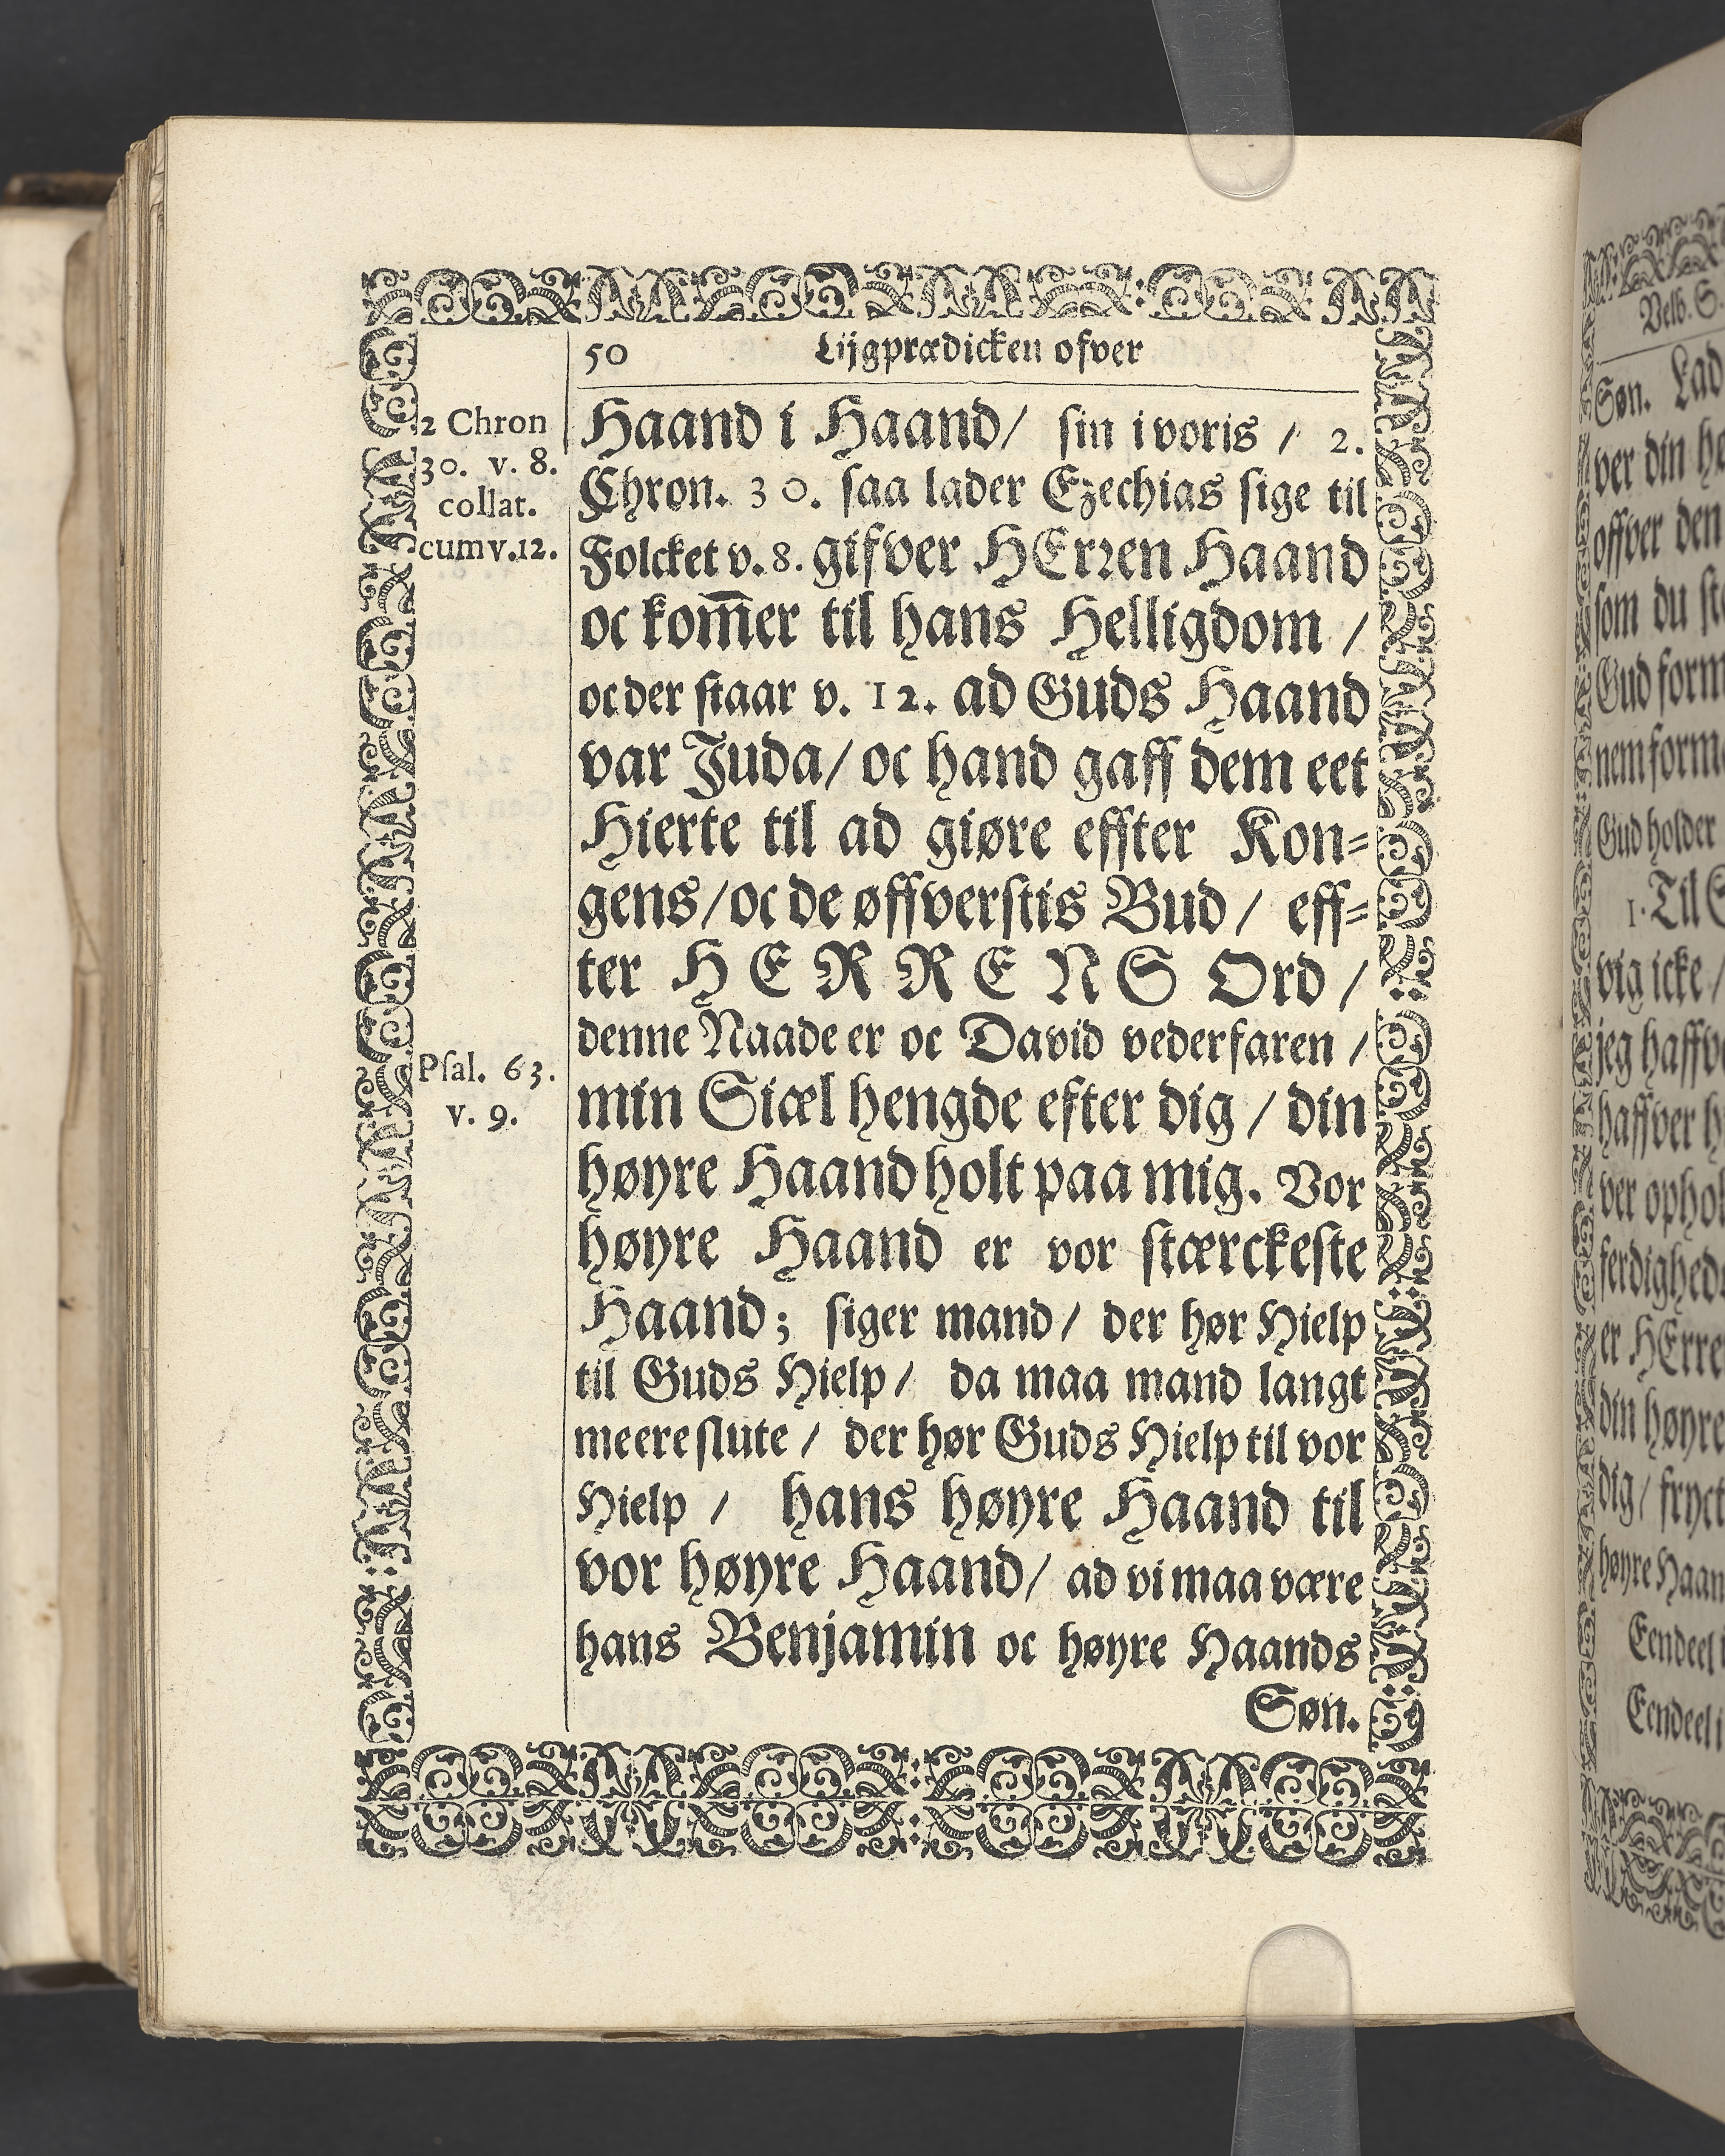 50 Lijgprædicken ofver
2 Chron
30. v. 8.
collat.
cum v. 12.
Haand i Haand/ sin i voris / 2.
Chron. 30. saa lader Ezechias sige til
Folcket v. 8. gifver HErren Haand
oc kom̅er til hans Helligdom /
oc der staar v. 12. ad Guds Haand
var Juda/ oc hand gaff dem eet
Hierte til ad giøre effter Kon=
gens/ oc de øffverstis Bud / eff=
ter HERRENS Ord /
denne Naade er oc David vederfaren /
Psal. 63.
v. 9.
min Siæl hengde efter dig / din
høyre Haand holt paa mig. Vor
høyre Haand er vor stærckeste
Haand; siger mand/ der hør Hielp
til Guds Hielp/ da maa mand langt
meere slute / der hør Guds Hielp til vor
Hielp / hans høyre Haand til
vor høyre Haand/ ad vi maa være
hans Benjamin oc høyre Haands
Søn.
Søn. Lad
ver din
offver den
som du
Gud
Gud holder
1. Til
vig icke /
jeg
ver
er
din høyre
dig /
høyre
Eendeel
Eendeel